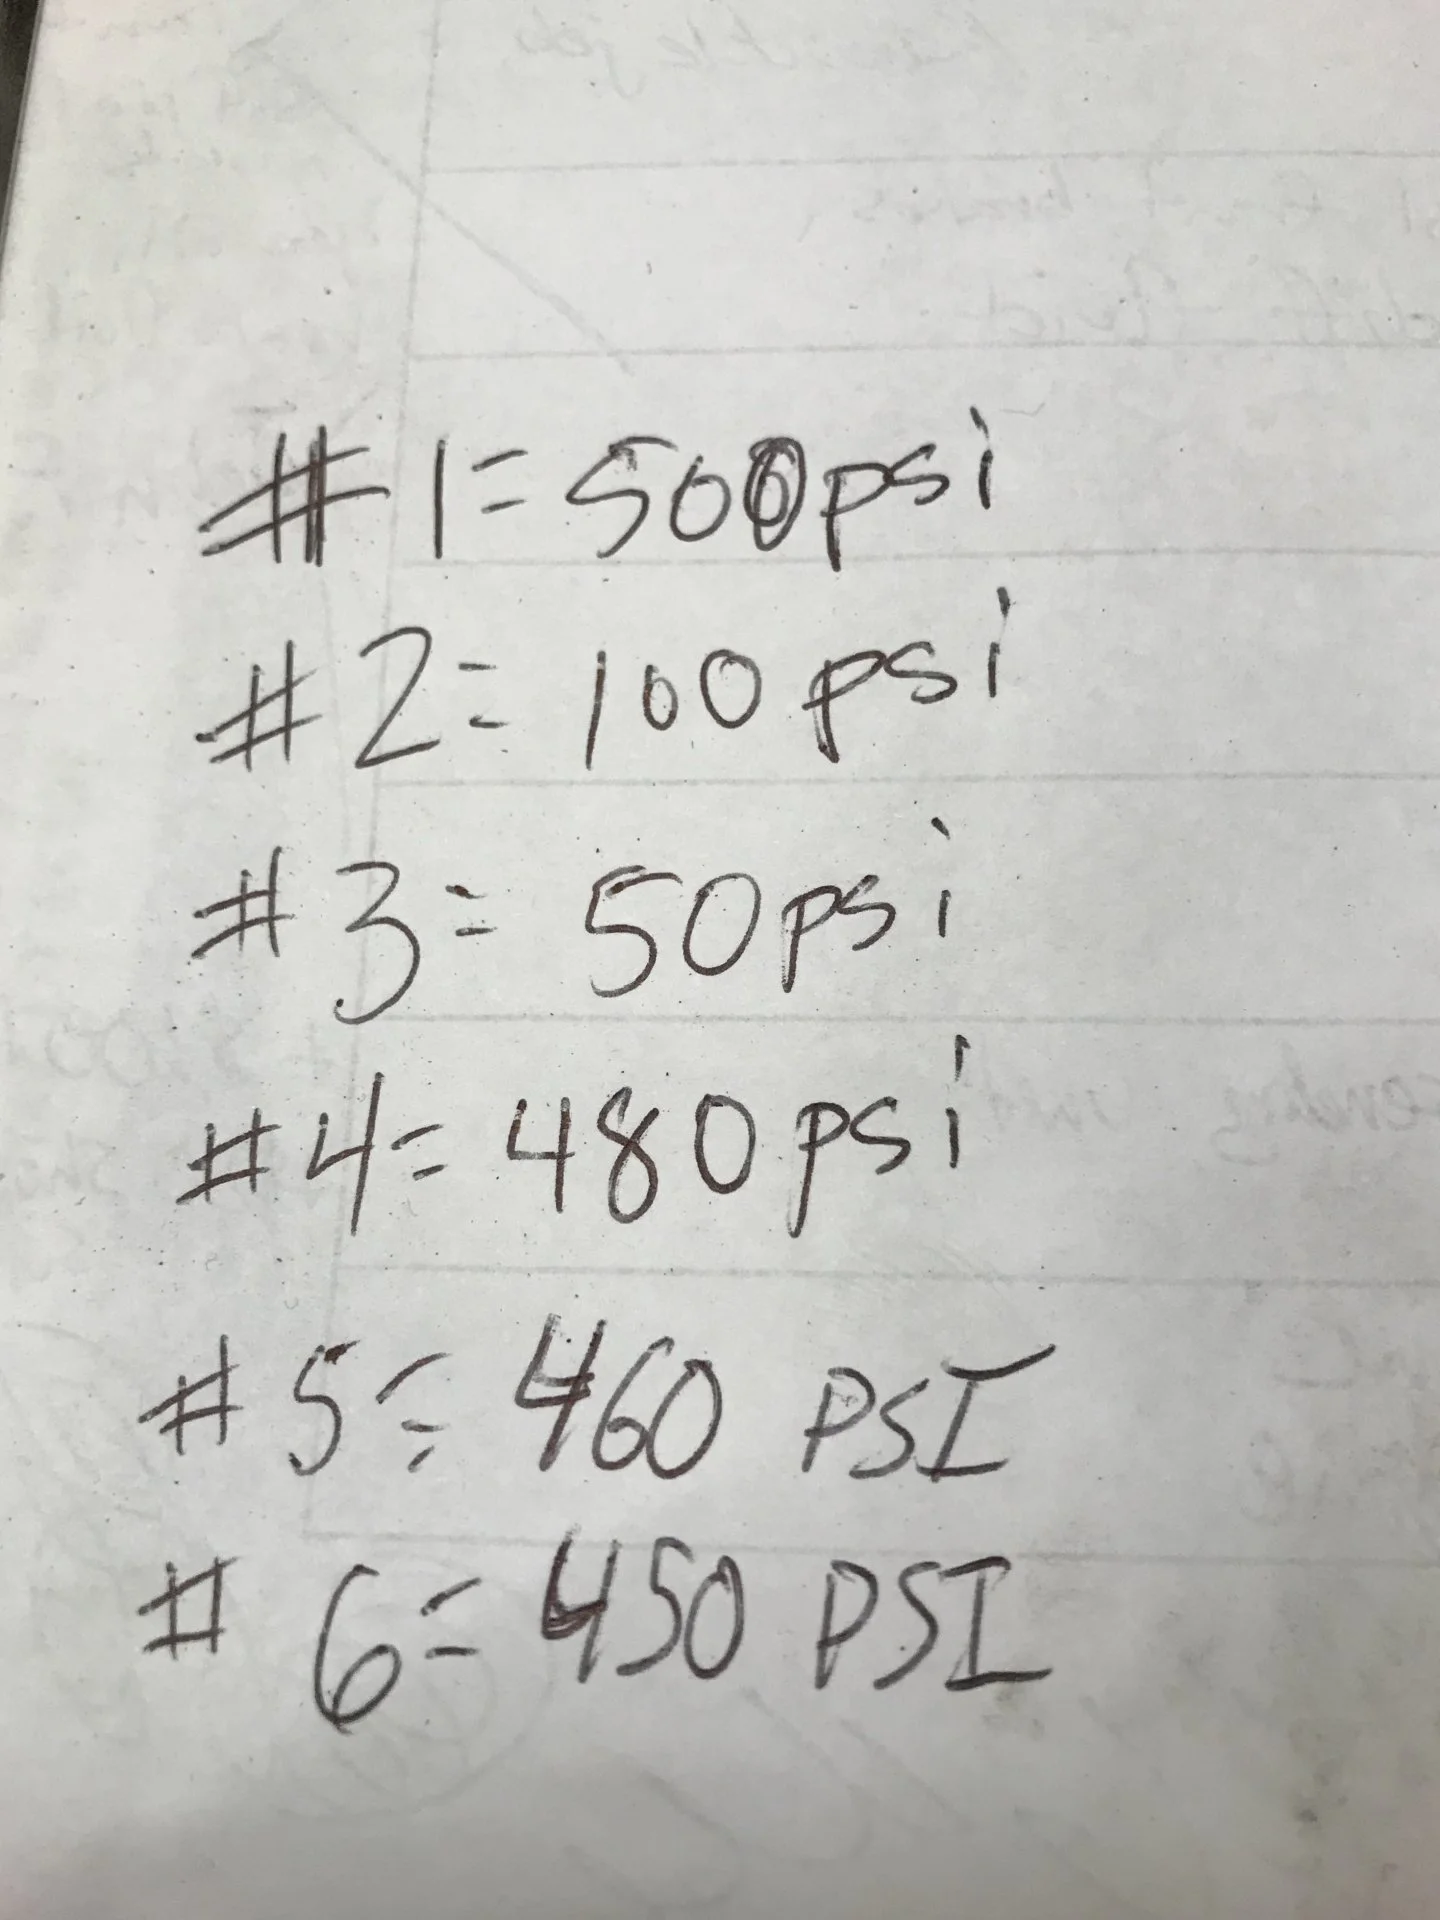 #1=500psi
#2=100psi
#3=50psi
#4=480psi
#5=460 PSI
#6=450 PSI